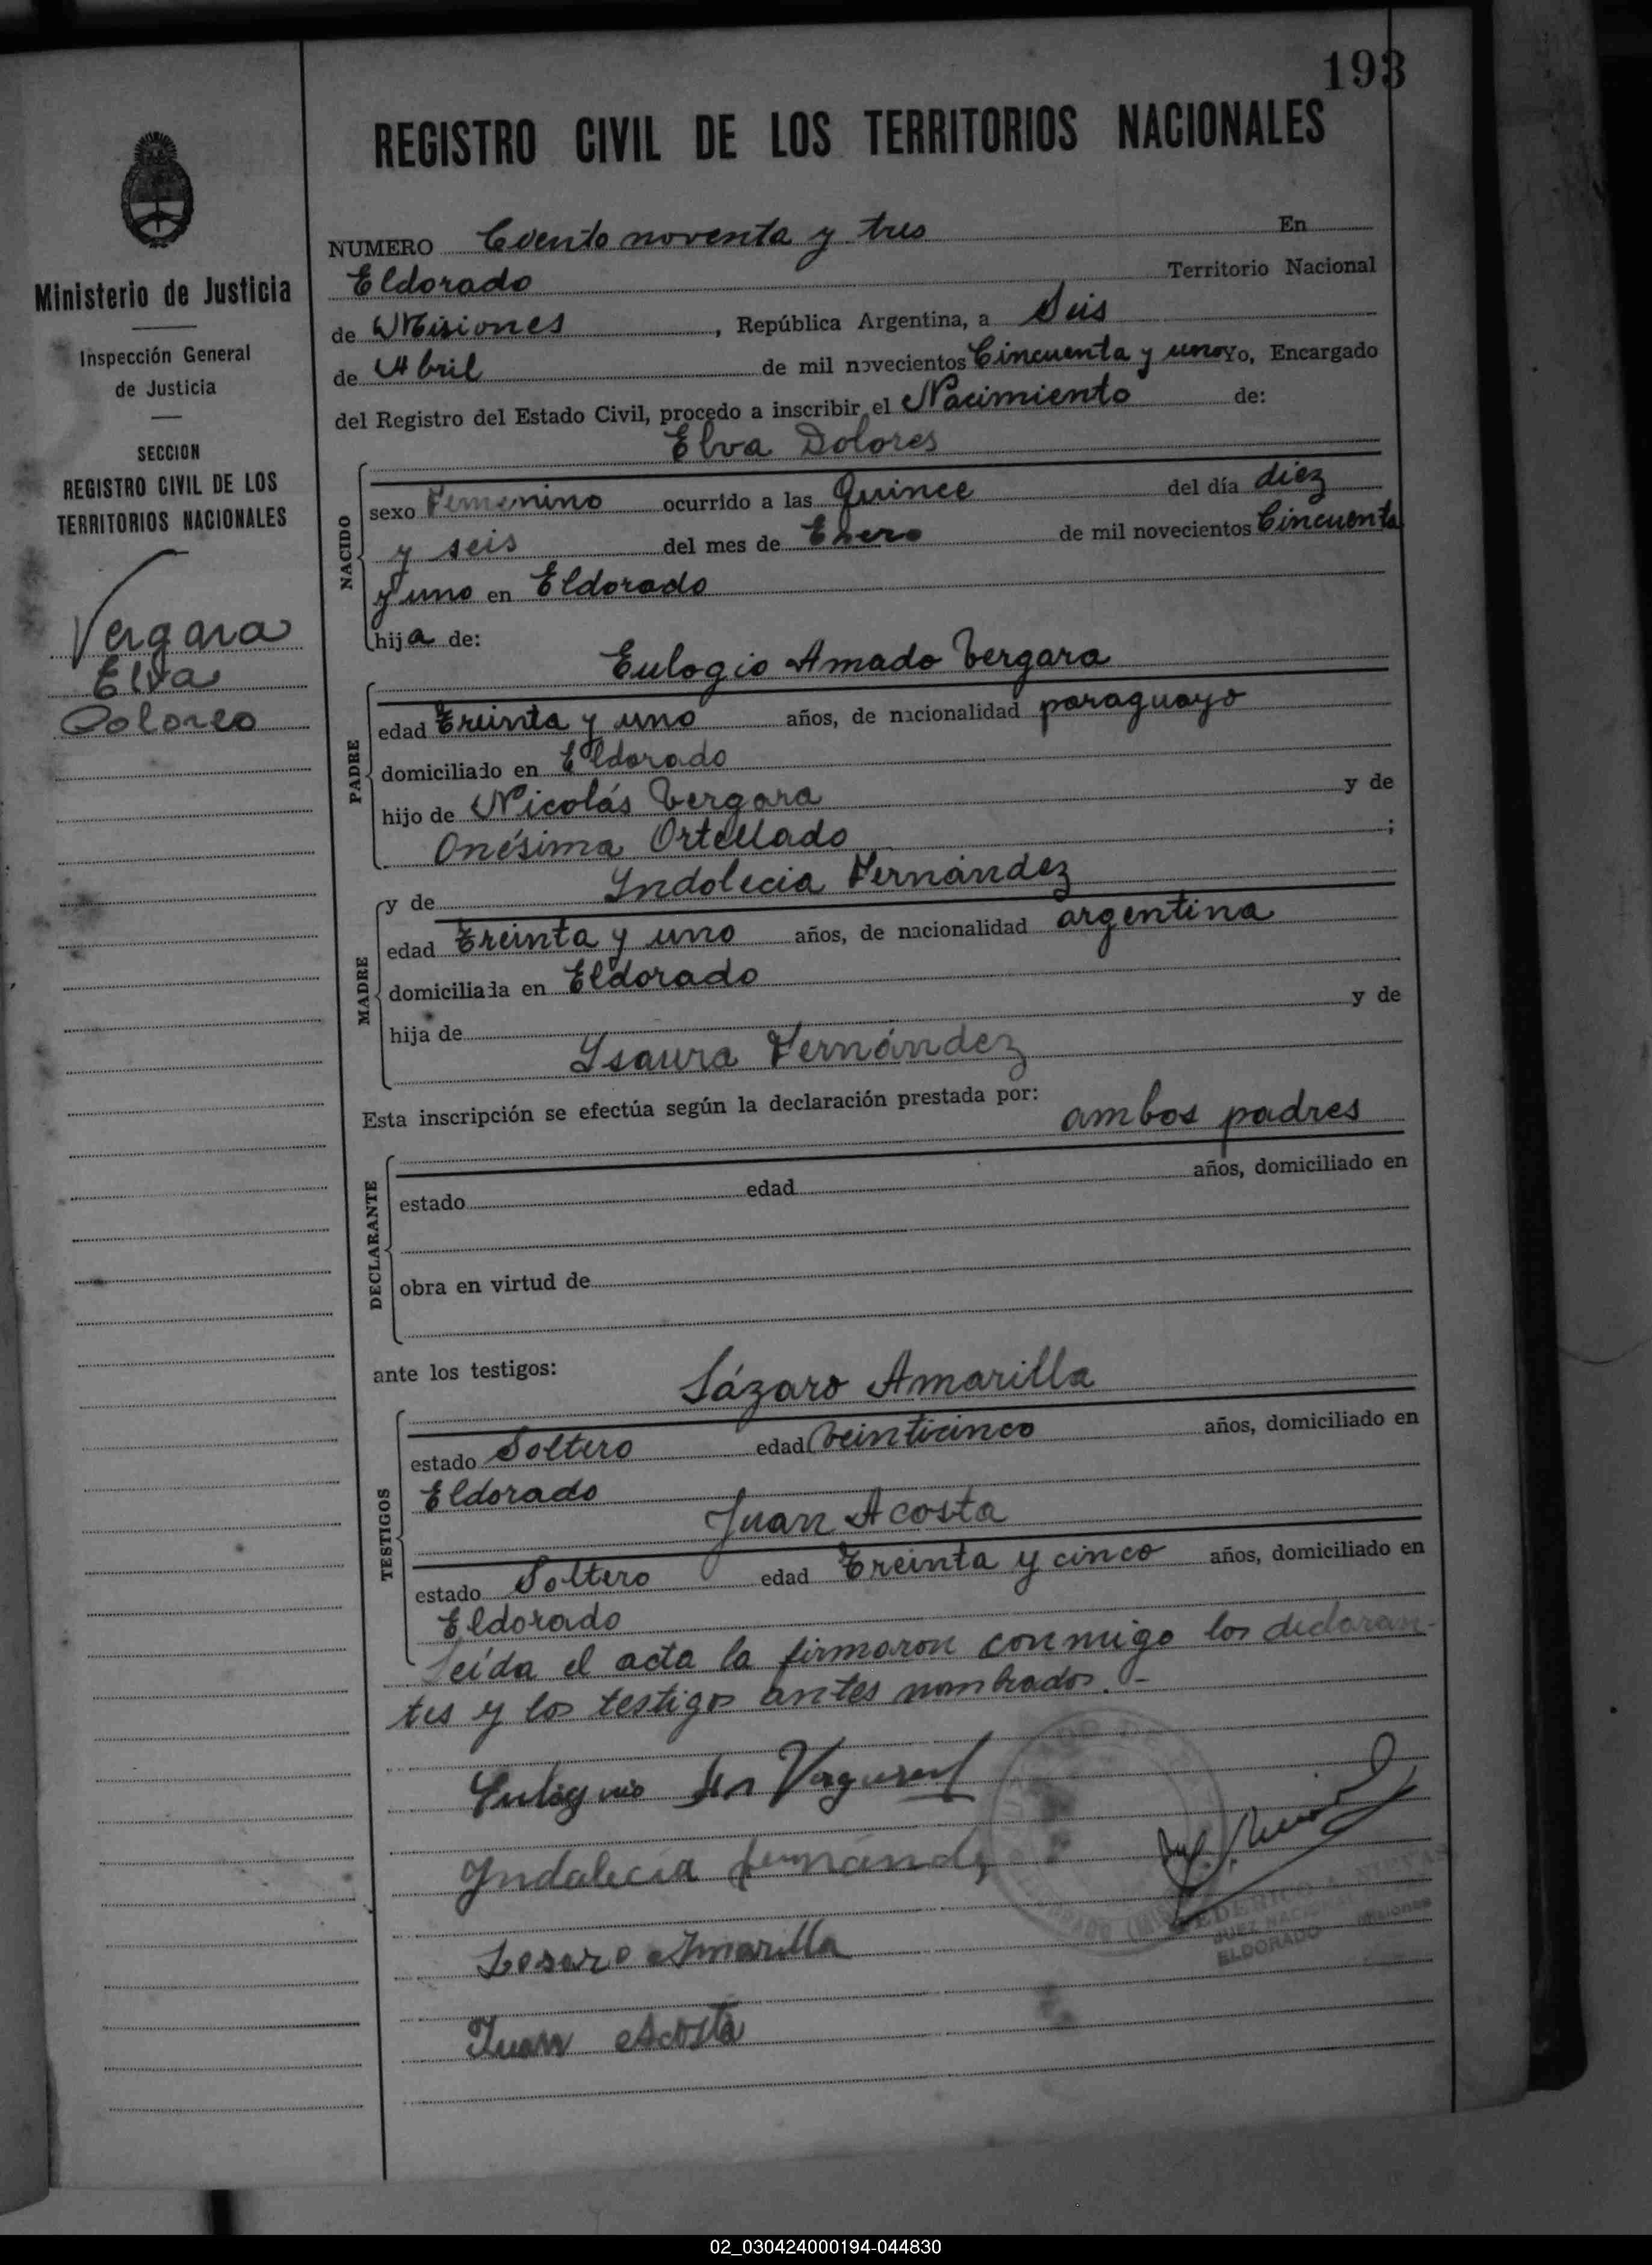 193
REGISTRO CIVIL DE LOS TERRITORIOS NACIONALES
Ministerio de Justicia
Inspección General
de Justicia
SECCION
REGISTRO CIVIL DE LOS
TERRITORIOS NACIONALES
Vergara
Elva
Dolores
NUMERO Ciento noventa y tres En
Eldorado Territorio Nacional
de Misiones, República Argentina, a Seis
de Abril de mil novecientos Cincuenta y uno Yo, Encargado
del Registro del Estado Civil, procedo a inscribir el Nacimiento de:
Elva Dolores
NACIDO
sexo Femenino ocurrido a las Quince del día diez
y seis del mes de Enero de mil novecientos Cincuenta
y uno en Eldorado
hija de:
Eulogio Amado Vergara
PADRE
edad Treinta y uno años, de nacionalidad paraguayo
domiciliado en Eldorado
hijo de Nicolás Vergara y de
Onésima Ortellado ;
MADRE
y de Indolecia Fernández
edad Treinta y uno años, de nacionalidad argentina
domiciliada en Eldorado
hija de y de
Isaura Fernández
Esta inscripción se efectúa según la declaración prestada por:
ambos padres
DECLARANTE
estado edad años, domiciliado en
obra en virtud de
ante los testigos:
Lázaro Amarilla
TESTIGOS
estado Soltero edad Veinticinco años, domiciliado en
Eldorado
Juan Acosta
estado Soltero edad Treinta y cinco años, domiciliado en
Eldorado
Leída el acta la firmaron conmigo los declaran-
tes y los testigos antes nombrados.-
Vergara
Indalecia Fernández
Lesaro Amarilla
Juan Acosta
JUEZ NACIONAL
ELDORADO Misiones
02_030424000194-044830